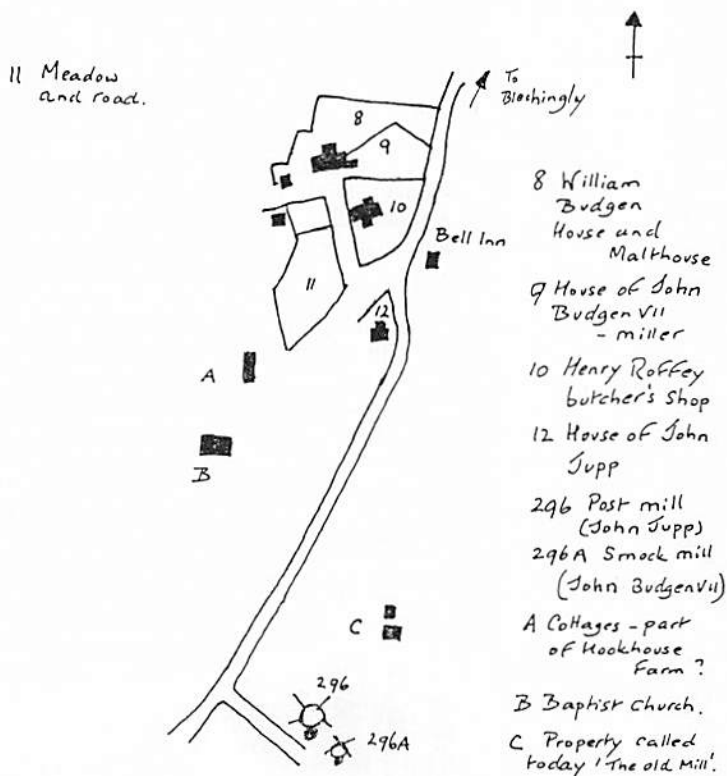 11 Meadow
and road.
To
Blechingly
8
9
10
Bell Inn
11
12
A
B
C
296
296A
8 William
Budgen
House and
Malthouse
9 House of John
Budgen VII
- miller
10 Henry Roffey
butcher's Shop
12 House of John
Jupp
296 Post mill
(John Jupp)
296A Smock mill
(John Budgen VII)
A Cottages - part
of Hookhouse
Farm ?
B Baptist Church.
C Property called
today 'The old Mill'.